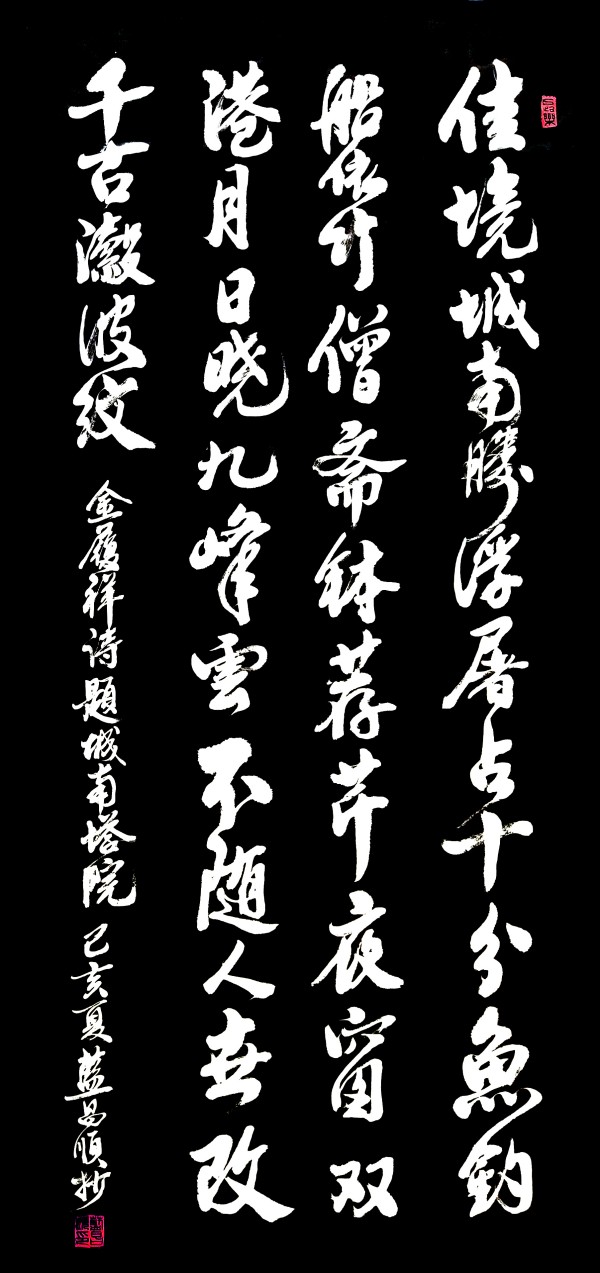 佳境城南勝浮屠占十分魚釣
船依竹僧斋鉢荐芹夜窗双
港月日晓九峰雲不随人世改
千古瀫波纹
金履祥诗題城南塔院己亥夏藍昌順抄